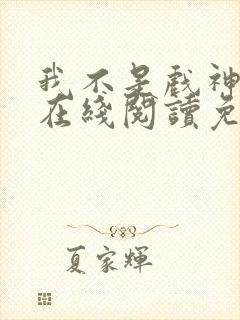 我不是戲神
在綫閱讀免
夏家輝